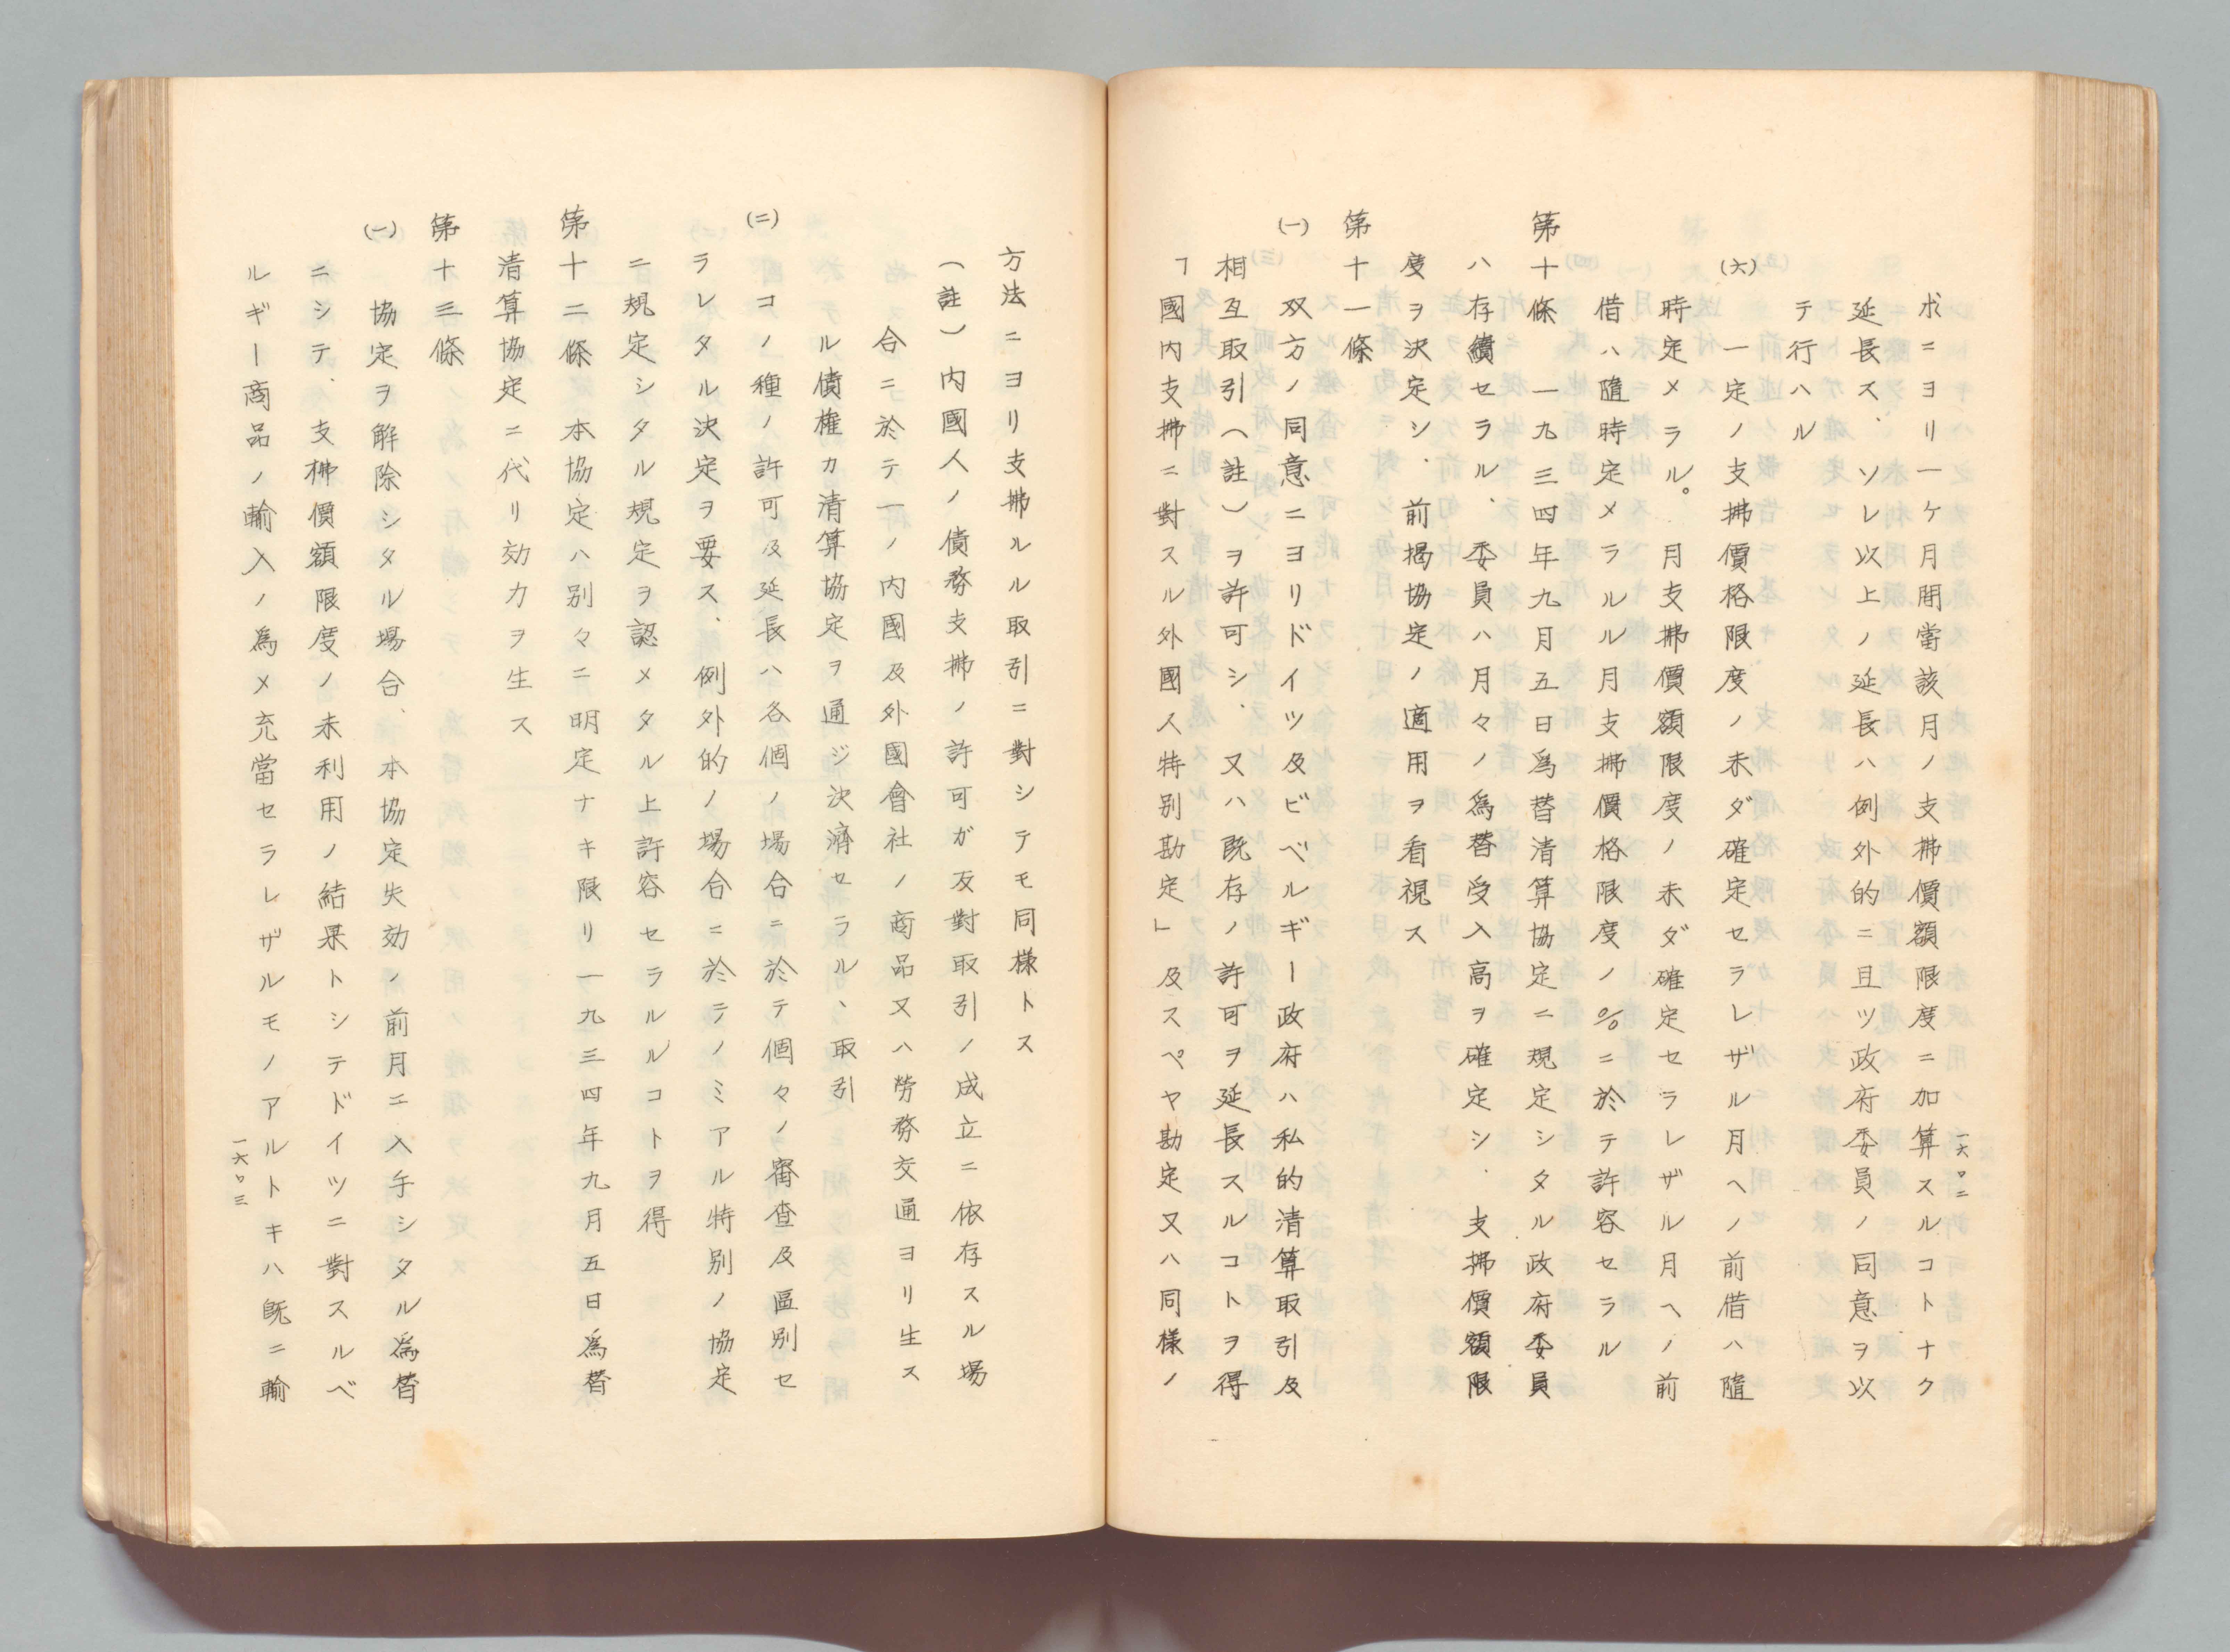 求ニヨリ一ケ月間當該月ノ支拂價額限度ニ加算スルコトナク
延長ス、ソレ以上ノ延長ハ例外的ニ且ツ政府委員ノ同意ヲ以
テ行ハル
(六) 一定ノ支拂價格限度ノ未ダ確定セラレザル月ヘノ前借ハ隨
時定メラル。月支拂價額限度ノ未ダ確定セラレザル月ヘノ前
借ハ隨時定メラルル月支拂價格限度ノ%ニ於テ許容セラル
第十條 一九三四年九月五日爲替清算協定ニ規定シタル政府委員
ハ存續セラル、委員ハ月々ノ爲替受入高ヲ確定シ、支拂價額限
度ヲ決定シ、前揭協定ノ適用ヲ看視ス
第十一條
(一) 双方ノ同意ニヨリドイツ及ビベルギー政府ハ私的清算取引及
相互取引(註)ヲ許可シ、又ハ既存ノ許可ヲ延長スルコトヲ得
「國内支拂ニ對スル外國人特別勘定」及スペヤ勘定又ハ同様ノ
一六〇二
方法ニヨリ支拂ルル取引ニ對シテモ同様トス
(註)内國人ノ債務支拂ノ許可ガ反對取引ノ成立ニ依存スル場
合ニ於テ一ノ内國及外國會社ノ商品又ハ勞務交通ヨリ生ス
ル債權カ清算協定ヲ通ジ決濟セラル、取引
(二) コノ種ノ許可及延長ハ各個ノ場合ニ於テ個々ノ審査及區別セ
ラレタル決定ヲ要ス、例外的ノ場合ニ於テノミアル特別ノ協定
ニ規定シタル規定ヲ認メタル上許容セラルルコトヲ得
第十二條 本協定ハ別々ニ明定ナキ限リ一九三四年九月五日爲替
清算協定ニ代リ効力ヲ生ス
第十三條
(一) 協定ヲ解除シタル場合、本協定失効ノ前月ニ入手シタル爲替
ニシテ、支拂價額限度ノ未利用ノ結果トシテドイツニ對スルベ
ルギー商品ノ輸入ノ爲メ充當セラレザルモノアルトキハ既ニ輸
一六〇三